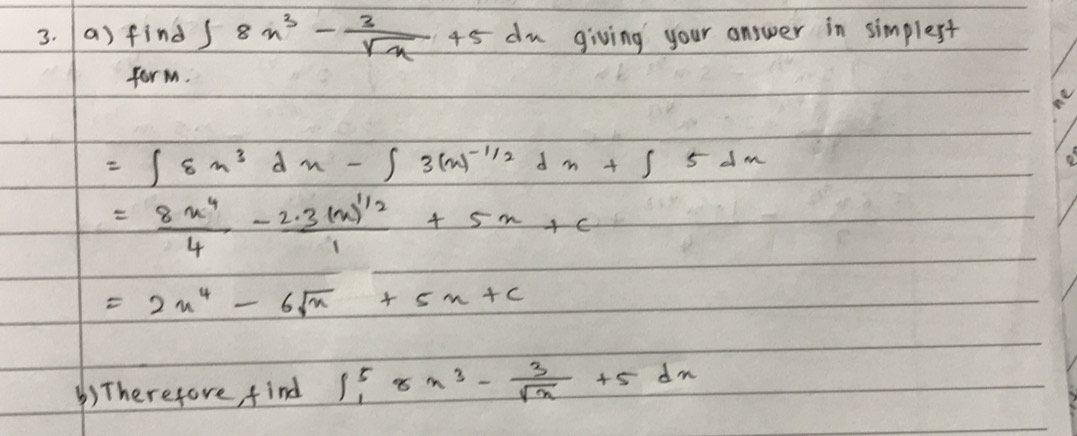 3. a) find ∫ 8x³ - 3/√x + 5 dx giving your answer in simplest
form.
= ∫ 8x³ dx - ∫ 3(x)^-1/2 dx + ∫ 5 dx
= 8x⁴/4 - 2·3(x)^1/2/1 + 5x + c
= 2x⁴ - 6√x + 5x + c
b) Therefore, find ∫₁⁵ 8x³ - 3/√x + 5 dx